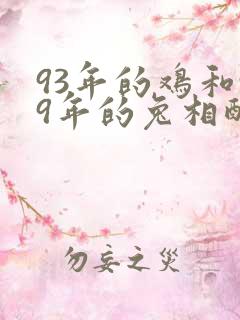 93年的鸡和
9年的兔相
勿妄之灾